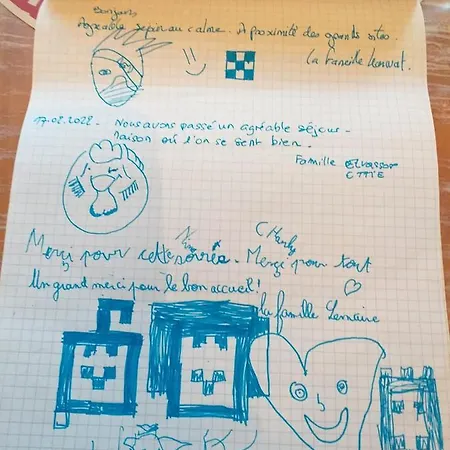 Bonjour
Agréable séjour au calme. A proximité des grands sites.
La famille
17.08.2022 - Nous avons passé un agréable séjour -
Maison où l'on se sent bien.
Famille
Nino Charly
Merci pour cette soirée. Merci pour tout
Un grand merci pour le bon accueil!
la famille Lemaire